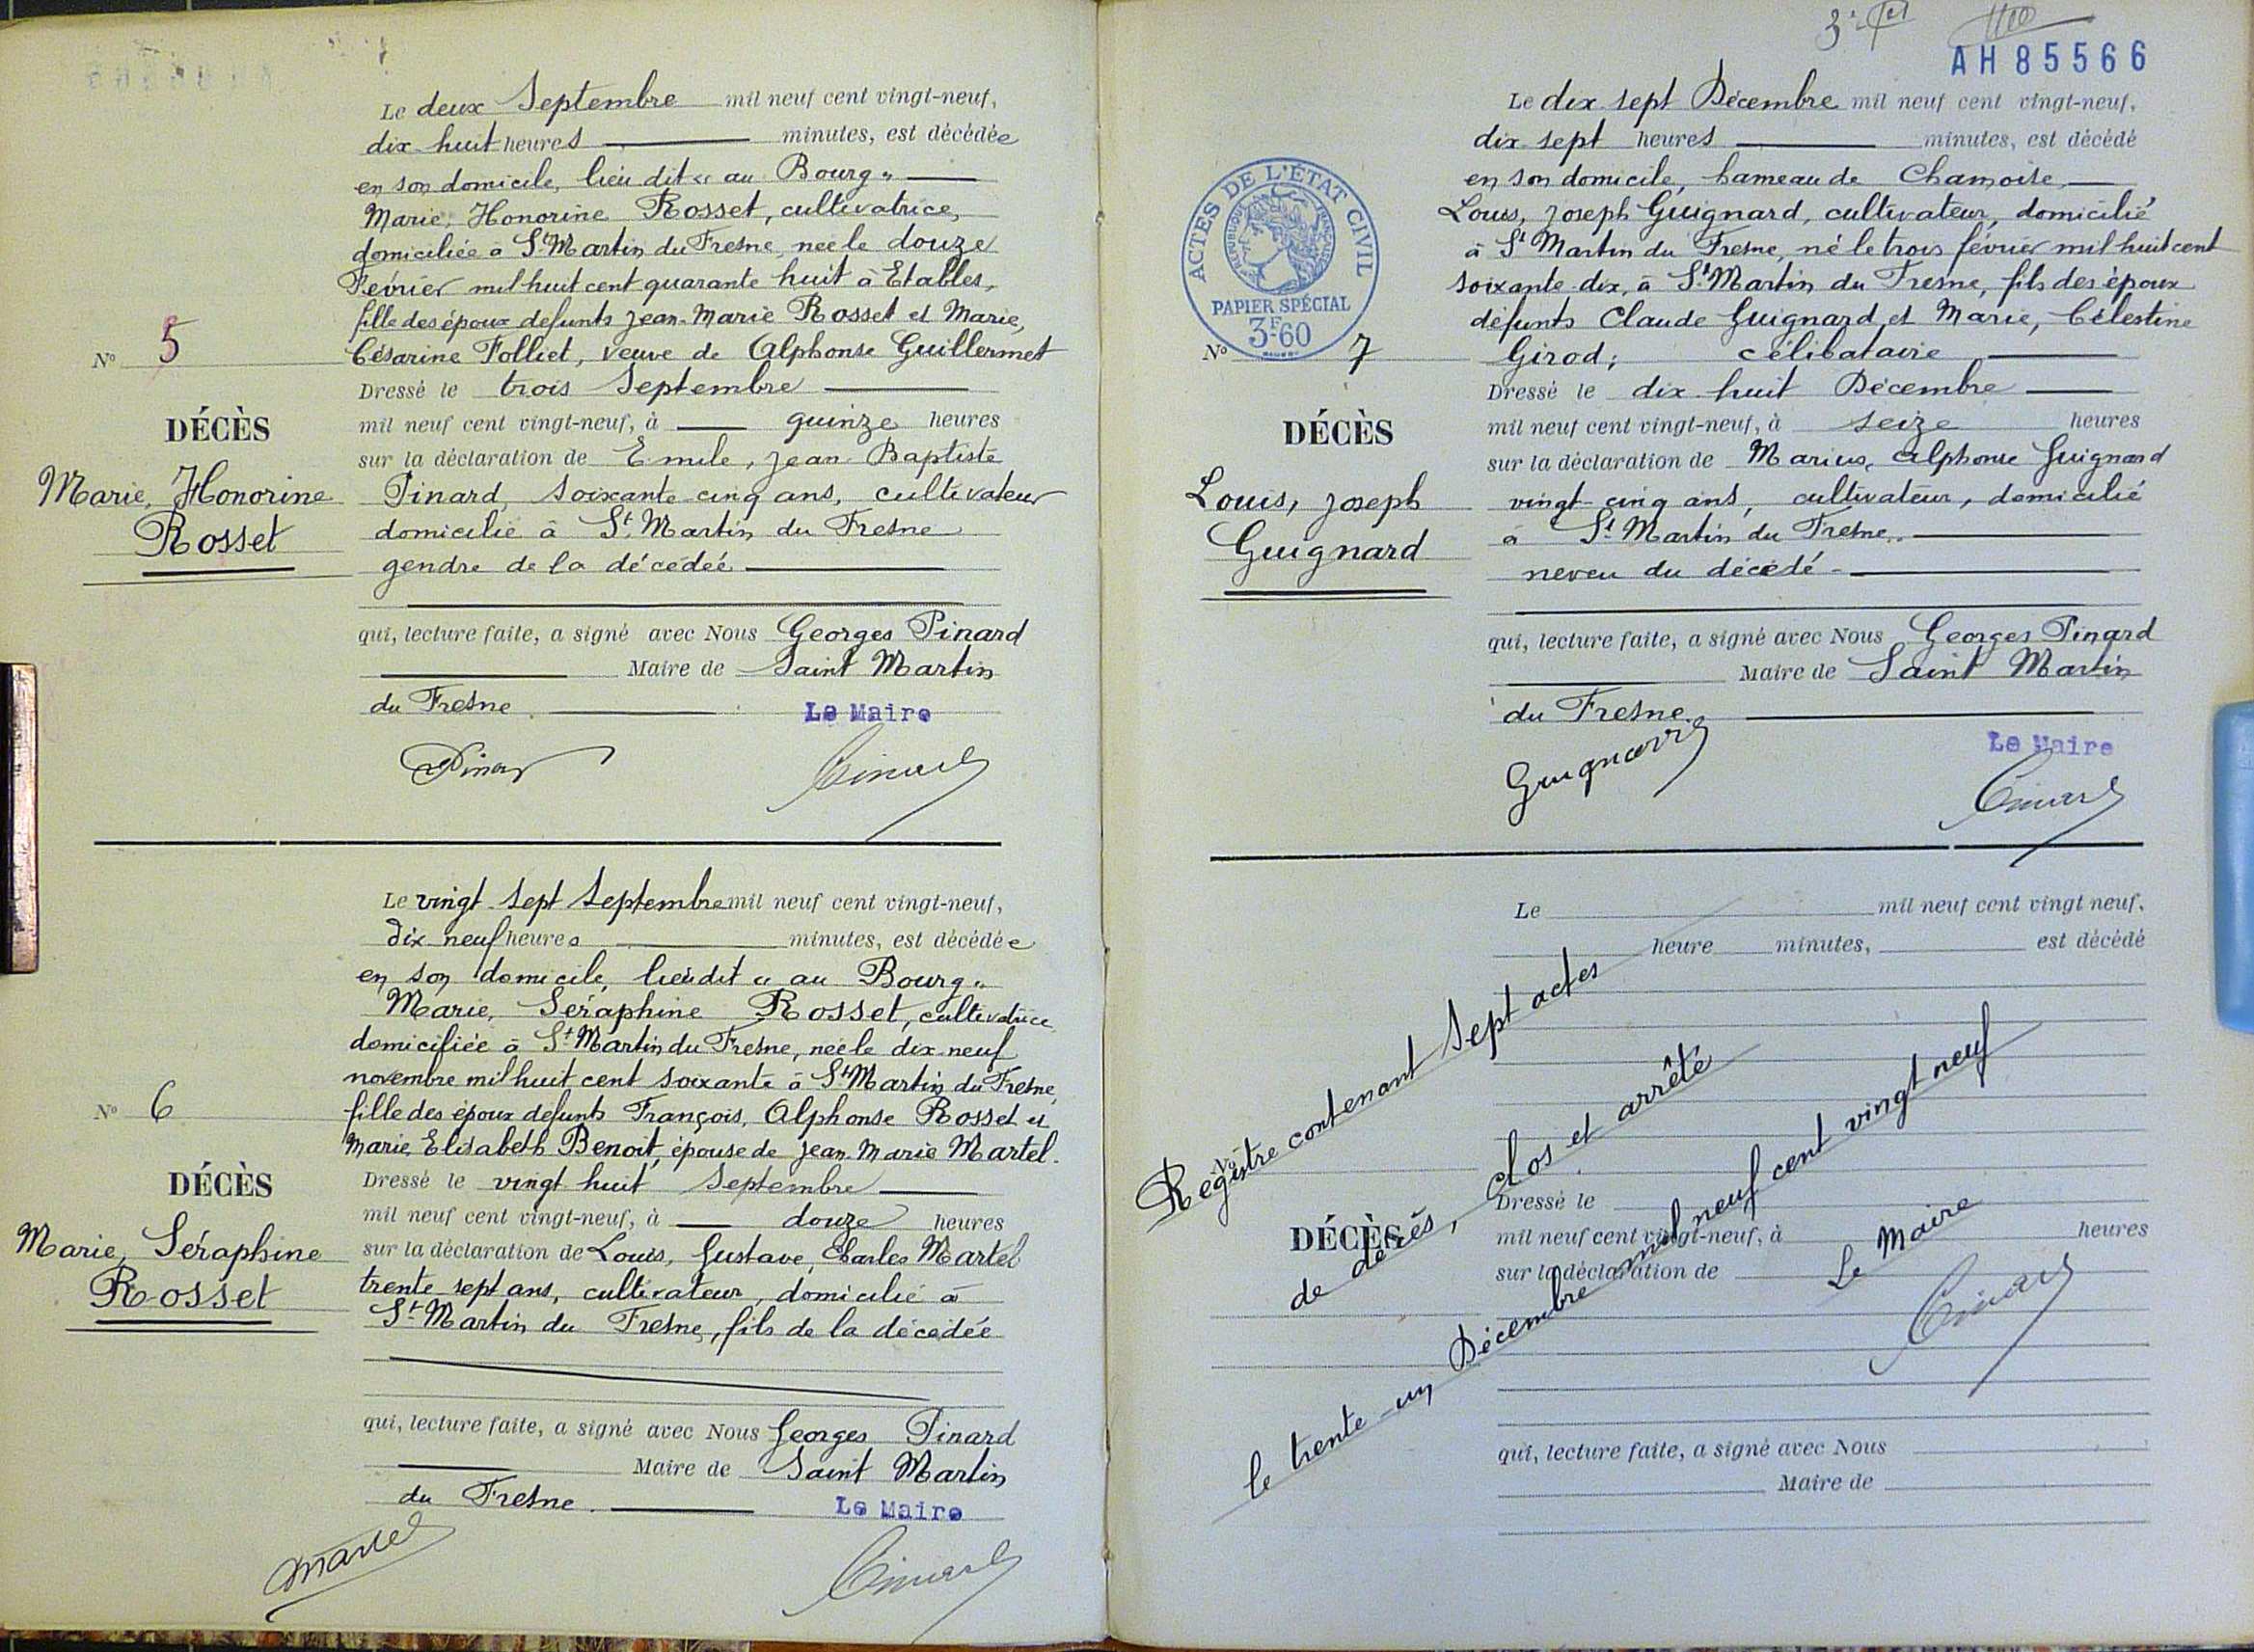 Le deux Septembre mil neuf cent vingt-neuf,
dix-huit heures minutes, est décédée
en son domicile, lieu dit « au Bourg »
Marie, Honorine Rosset, cultivatrice,
domiciliée à St Martin du Fresne, née le douze
Février mil huit cent quarante huit à Etables,
fille des époux défunts Jean-Marie Rosset et Marie,
Césarine Folliet, veuve de Alphonse Guillermet
N° 5
Dressé le trois Septembre
mil neuf cent vingt-neuf, à quinze heures
DÉCÈS
sur la déclaration de Emile, Jean-Baptiste
Marie, Honorine
Rosset
Pinard, soixante-cinq ans, cultivateur
domicilié à St Martin du Fresne
gendre de la décédée
qui, lecture faite, a signé avec Nous Georges Pinard
Maire de Saint Martin
du Fresne
Le Maire
Pinard
Le vingt-sept Septembre mil neuf cent vingt-neuf,
Dix neuf heures minutes, est décédée
en son domicile, lieu dit « au Bourg »
Marie, Séraphine Rosset, cultivatrice
domiciliée à St Martin du Fresne, née le dix-neuf
novembre mil huit cent soixante à St Martin du Fresne,
N° 6
fille des époux défunts François, Alphonse Rosset et
Marie Elisabeth Benoit, épouse de Jean-Marie Martel.
DÉCÈS
Dressé le vingt huit Septembre
mil neuf cent vingt-neuf, à douze heures
Marie, Séraphine
Rosset
sur la déclaration de Louis, Gustave, Charles Martel
trente sept ans, cultivateur, domicilié à
St Martin du Fresne, fils de la décédée
qui, lecture faite, a signé avec Nous Georges Pinard
Maire de Saint Martin
du Fresne.
Le Maire
Martel
Pinard
AH 85566
Le dix-sept Décembre mil neuf cent vingt-neuf,
dix-sept heures minutes, est décédé
en son domicile, hameau de Chamoise,
Louis, Joseph Guignard, cultivateur, domicilié
à St Martin du Fresne, né le trois février mil huit cent
soixante-dix, à St Martin du Fresne, fils des époux
défunts Claude Guignard et Marie, Célestine
Girod; célibataire
ACTES DE L'ÉTAT CIVIL
RÉPUBLIQUE FRANÇAISE
PAPIER SPÉCIAL
3F60
N° 7
Dressé le dix huit Décembre
DÉCÈS
mil neuf cent vingt-neuf, à seize heures
sur la déclaration de Marius, Alphonse Guignard
Louis, Joseph
Guignard
vingt-cinq ans, cultivateur, domicilié
à St Martin du Fresne.
neveu du décédé
qui, lecture faite, a signé avec Nous Georges Pinard
Maire de Saint Martin
du Fresne.
Le Maire
Guignard
Pinard
Le mil neuf cent vingt neuf,
heure minutes, est décédé
N°
DÉCÈS
Dressé le
mil neuf cent vingt-neuf, à heures
sur la déclaration de
qui, lecture faite, a signé avec Nous
Maire de
Registre contenant sept actes
de décès, clos et arrêté
le trente-un Décembre mil neuf cent vingt neuf
Le Maire
Pinard